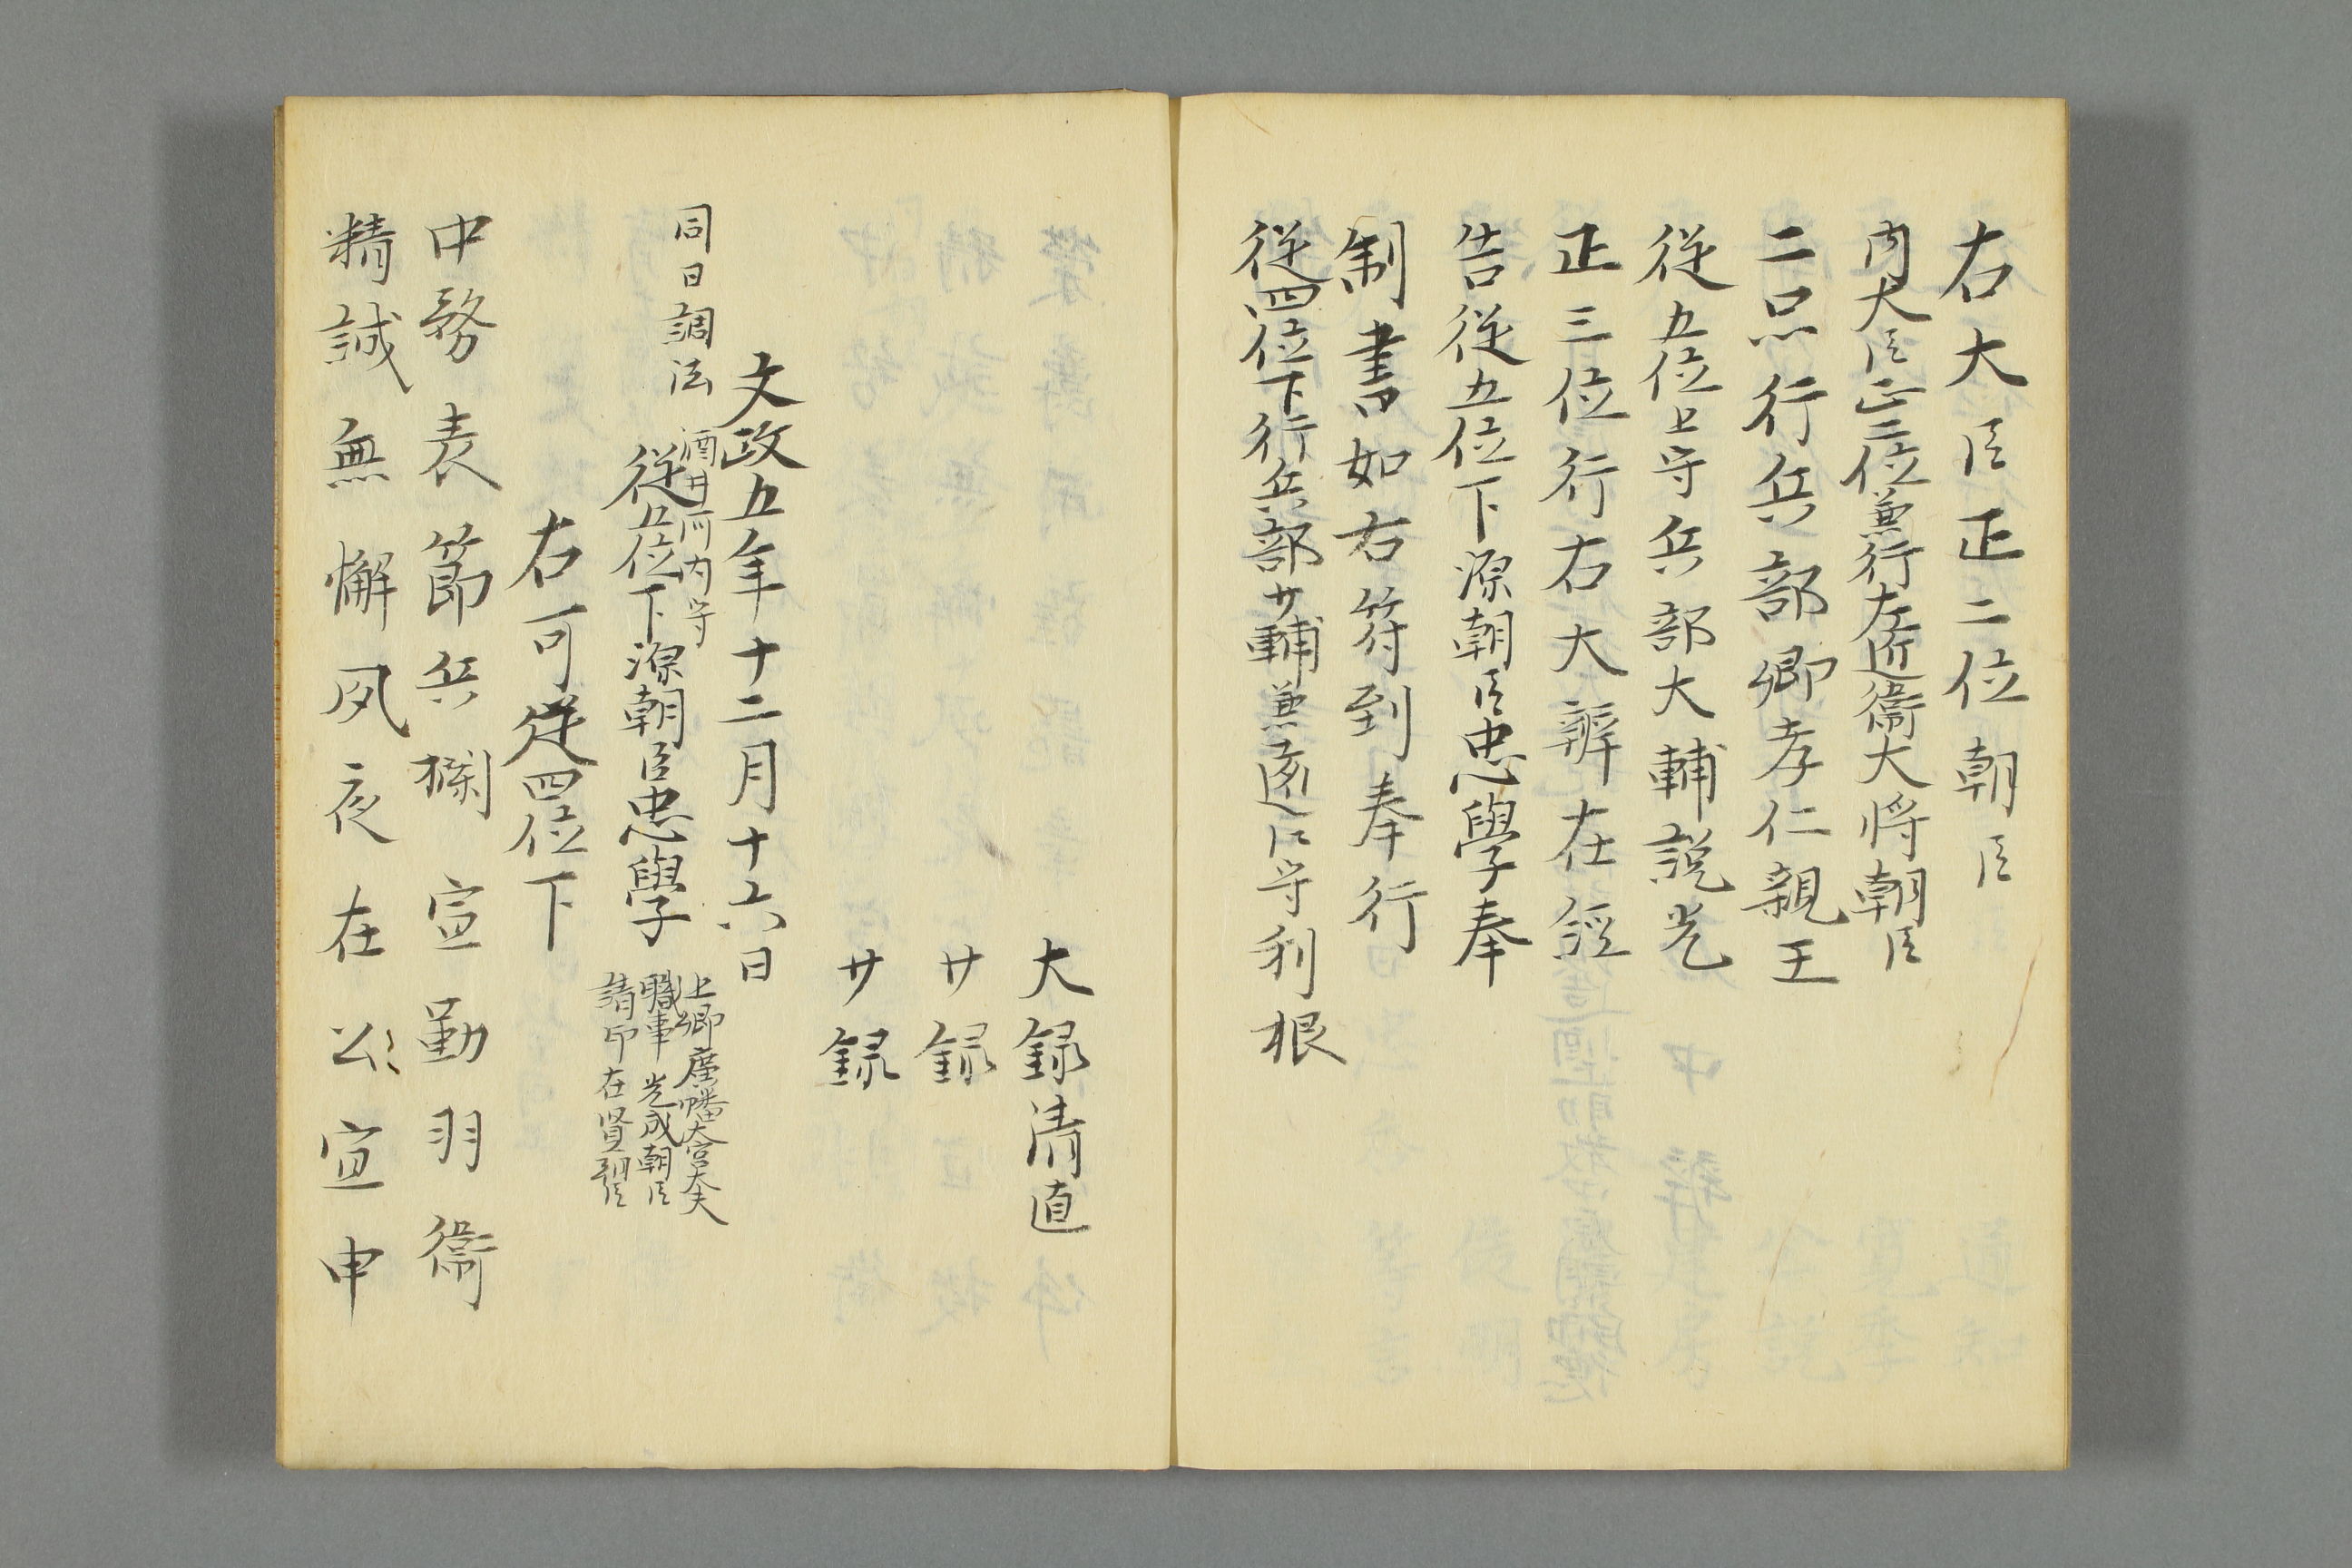 右大臣正二位朝臣
内大臣正二位兼行左近衞大将朝臣
二品行兵部卿孝仁親王
従五位上守兵部大輔説光
正三位行右大辨在經
告従五位下源朝臣忠學奉
制書如右符到奉行
従四位下行兵部少輔兼遠江守利根
大録清直
少録
少録
文政五年十二月十六日
同日調法
酒井河内守
従五位下源朝臣忠學
上卿 大宮大夫
職事 光成朝臣
請印 在賢朝臣
右可従四位下
中務表節兵欄宣勤羽衞
精誠無懈夙夜在公宣申